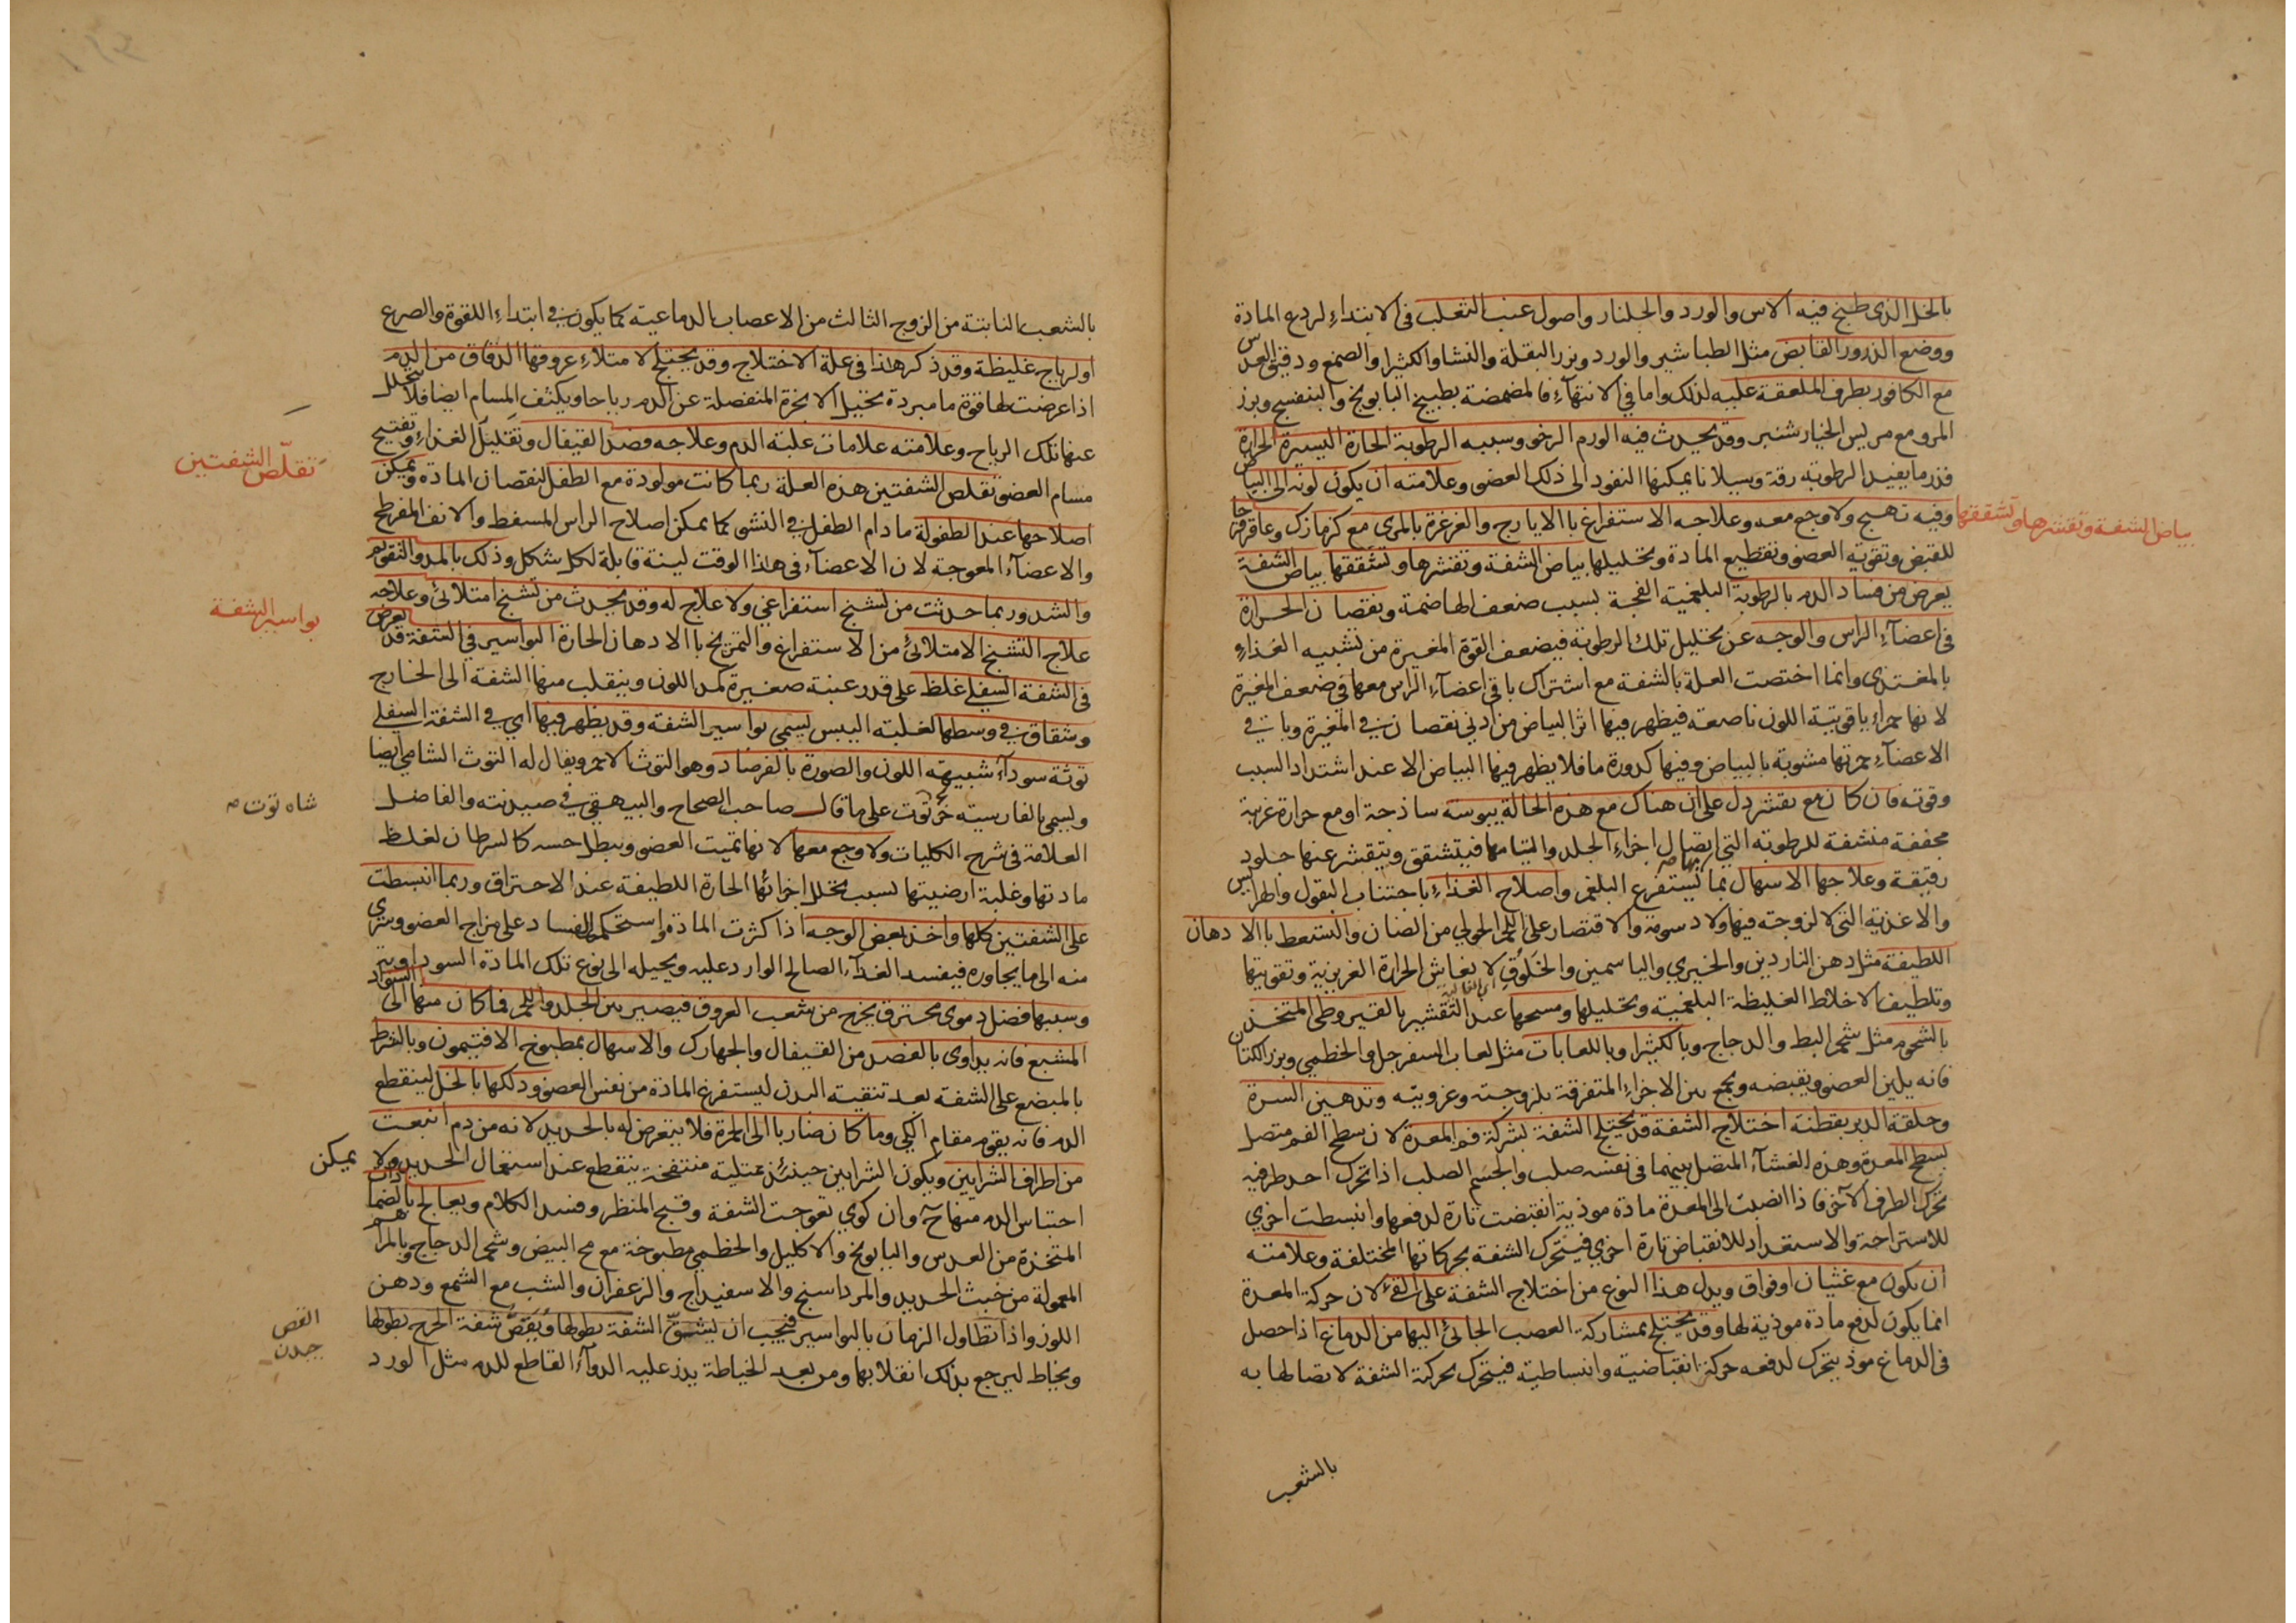 بالخل الذى طبخ فيه الاس والورد والجلنار واصول عنب الثعلب فى الابتداء لردع المادة
ووضع الذرور القابض مثل الطباشير والورد وبزر البقلة والنشا والكثيرا والصمغ ودقيق العدس
مع الكافور بطرف الملعقة عليه لذلك واما في الانتهاء فالمضمضة بطبيخ البابونج والبنفسج وبزر
المرو مع مريس الخيارشنبر وقد يحدث فيه الورم الرخو وسببه الرطوبة الحارة اليسيرة الحرارة
قدر ما يفيد الرطوبة رقة وسيلانا يمكنها النفود الى ذلك العضو وعلامته ان يكون لونه الى البياض
وفيه تهبج ولا وجع معه وعلاجه الاستفراغ باالايارج والغرغرة بالمرى مع كزمازك وعاقرقرحا
بياض الشفة وتقشرها وتشققها
للقبض وتقوية العضو وتقطيع المادة وتحليلها بياض الشفة وتقشرها وتشققها بياض الشفة
يعرض من فساد الدم بالرطوبة البلغمية الفجة بسبب ضعف الهاضمة ونقصان الحرارة
فى اعضآء الراس والوجه عن تحليل تلك الرطوبة فيضعف القوة المغيرة من تشبيه الغذاء
بالمغتذى وانما اختصت العلة بالشفة مع اشتراك باقى اعضآء الراس معها في ضعف المغيرة
لانها حمراء ياقوتية اللون ناصعة فيظهر فيها اثر البياض من ادنى نقصان في المغيرة وباقي
الاعضآء حمرتها مشوبة بالبياض وفيها كدورة ما فلا يظهر فيها البياض الا عند اشتداد السبب
وقوته فان كان مع تقشر دل على ان هناك مع هذه الحالة يبوسة ساذجة او مع حرارة غريبة
مجففة منشفة للرطوبة التي بها اتصال اجزاء الجلد والتيامها فيتشقق ويتقشر عنها جلود
رقيقة وعلاجها الاسهال بما يستفرغ البلغم واصلاح الغذاء باجتناب البقول
والاغذية التى لا لزوجة فيها ولا دسومة والاقتصار على اللحم الحولي من الضان والتسعط باالادهان
اللطيفة مثل دهن الناردين والخيري والياسمين والخلوق لانعاش الحرارة الغريزية وتقويتها
وتلطيف الاخلاط الغليظة البلغمية وتحليلها ومسحها عند التقشير بالقيروطى المتخذ
بالشحوم مثل شحم البط والدجاج وبالكثيرا وباللعابات مثل لعاب السفرجل والخطمي وبزر الكتان
فانه يلين العضو ويقبضه ويجمع بين الاجزاء المتفرقة بلزوجته وغرويته وتدهين السرة
وحلقة الدبر بقطنة اختلاج الشفة قد يختلج الشفة بشركة فم المعدة لان سطح الفم متصل
بسطح المعدة وهذه الغشآء المتصل بينهما في نفسه صلب والجسم الصلب اذا تحرك احد طرفيه
تحرك الطرف الآخر فاذا انصبت الى المعدة مادة موذية انقبضت تارة لدفعها وانبسطت اخري
للاستراحة والاستعداد للانقباض تارة اخري فيتحرك الشفة بحركاتها المختلفة وعلامته
ان يكون مع غثيان او فواق ويدل هذا النوع من اختلاج الشفة على القئ لان حركة المعدة
انما يكون لدفع مادة موذية لها وقد يختلج بمشاركة العصب الجائى اليها من الدماغ اذا حصل
فى الدماغ موذ يتحرك لدفعه حركة انقباضية وانبساطية فيتحرك بحركة الشفة لاتصالها به
بالشعب
بالشعب النابتة من الزوج الثالث من الاعصاب الدماغية كما يكون في ابتداء اللقوة والصرع
او لرياح غليظة وقد ذكر هذا فى علة الاختلاج وقد يختلج لامتلاء عروقها الدقاق من الدم
اذا عرضت لها قوة ما مبردة تحيل الابخرة المنفصلة عن الدم رياحا ويكثف المسام ايضا فلا يتحلل
عنها تلك الرياح وعلامته علامات غلبة الدم وعلاجه فصد القيفال وتقليل الغذاء وتفتيح
تقلّص الشفتين
مسام العضو تقلص الشفتين هذه العلة ربما كانت مولودة مع الطفل لنقصان المادة ويمكن
اصلاحها عند الطفولة ما دام الطفل في النشو كما يمكن اصلاح الراس المسفط والانف المفرطح
والاعضآء المعوجة لان الاعضآء فى هذا الوقت لينة قابلة لكل شكل وذلك بالمد والتقويم
والشد وربما حدثت من تشنج استفراغي ولا علاج له وقد يحدث من تشنج امتلائي وعلاجه
بواسير الشفة
علاج التشنج الامتلائى من الاستفراغ والتمريخ باالادهان الحارة البواسير في الشفة قد يعرض
فى الشفة السفلي غلظ على قدر عنبة صغيرة كمد اللون وينقلب منها الشفة الى الخارج
وشقاق في وسطها لغلبة اليبس يسمى بواسير الشفة وقد يظهر فيها اي في الشفة السفلي
توثة سودآء شبيهة اللون والصورة بالفرصاد وهو التوث الاحمر ويقال له التوث الشامي ايضا
ويسمى بالفارسية خرتوت على ما قال صاحب الصحاح والبيهقي في صيدنته والفاضل
شاه توت
العلامة فى شرح الكليات ولا وجع معها لانها تميت العضو ويبطل حسه كالسرطان لغلظ
مادتها وغلبة ارضيتها بسبب تحلل اجزائها الحارة اللطيفة عند الاحتراق وربما انبسطت
على الشفتين كلها واخذ بعض الوجه اذا كثرت المادة واستحكم الفساد على مزاج العضو ويسرى
منه الى ما يجاوره فيفسد الغذآء الصالح الوارد عليه ويحيله الى نوع تلك المادة السوداوية
وسببها فضل دموى محترق يخرج من شعب العروق فيصير بين الجلد واللحم فما كان منها الى السواد
المشبع فانه يداوى بالفصد من القيفال والجهارك والاسهال بمطبوخ الافتيمون وبالشرط
بالمبضع على الشفة بعد تنقية البدن ليستفرغ المادة من نفس العضو ودلكها بالخل لينقطع
الدم فانه يقوم مقام الكي وما كان ضاربا الى الحمرة فلا يتعرض له بالحديد لانه من دم انبعث
من اطراف الشرايين ويكون الشرايين حينئذ ممتلية منتفخة ينقطع عند استعمال الحديد ولا يمكن
احتباس الدم منها وان كوي تعوجت الشفة وقبح المنظر وفسد الكلام ويعالج بالضمادات
المتخذة من العدس والبابونج والاكليل والخطمي مطبوخة مع مح البيض وشحم الدجاج وبالمراهم
المعمولة من خبث الحديد والمرداسنج والاسفيداج والزعفران والشب مع الشمع ودهن
اللوز واذا تطاول الزمان بالبواسير فيجب ان يشق الشفة بطولها ويقص شفة الجرح بطولها
القص
جيدن
ويخاط ليرجع بذلك انقلابها ومن بعد الخياطة يذر عليه الدوآء القاطع للدم مثل الورد